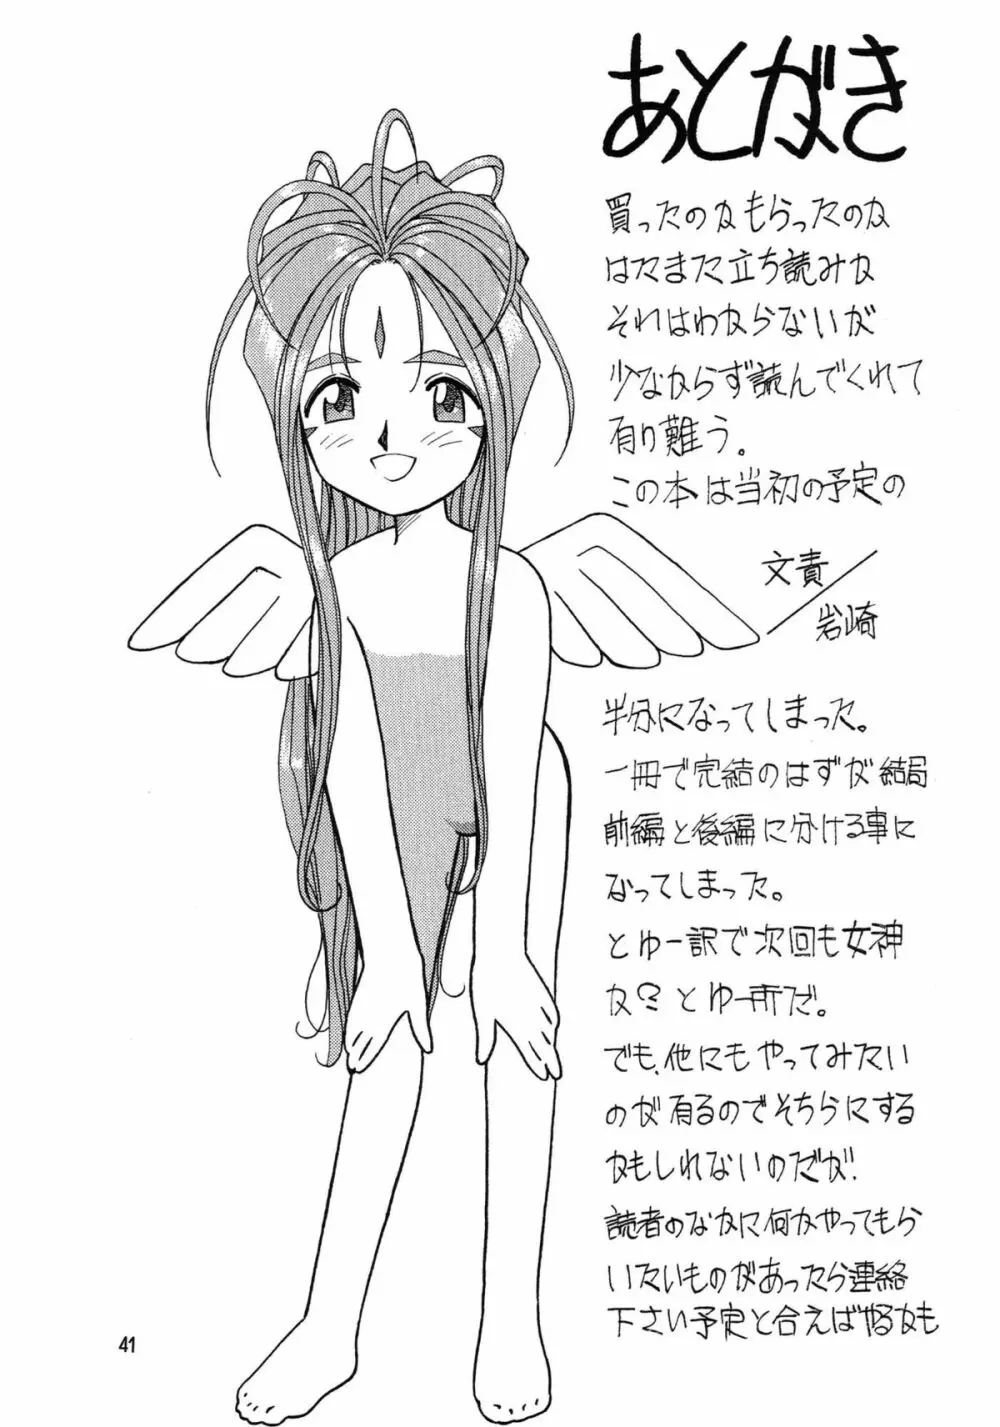 あとがき
買ったのかもらったのか
はたまた立ち読みか
それはわからないが
少なからず読んでくれて
有り難う。
この本は当初の予定の
文責／
岩崎
半分になってしまった。
一冊で完結のはずが結局
前編と後編に分ける事に
なってしまった。
とゆー訳で次回も女神
か!? とゆー所だ。
でも、他にもやってみたい
のが有るのでそちらにする
かもしれないのだが!
読者のなかに何かやってもら
いたいものがあったら連絡
下さい予定と合えばやるかも
41